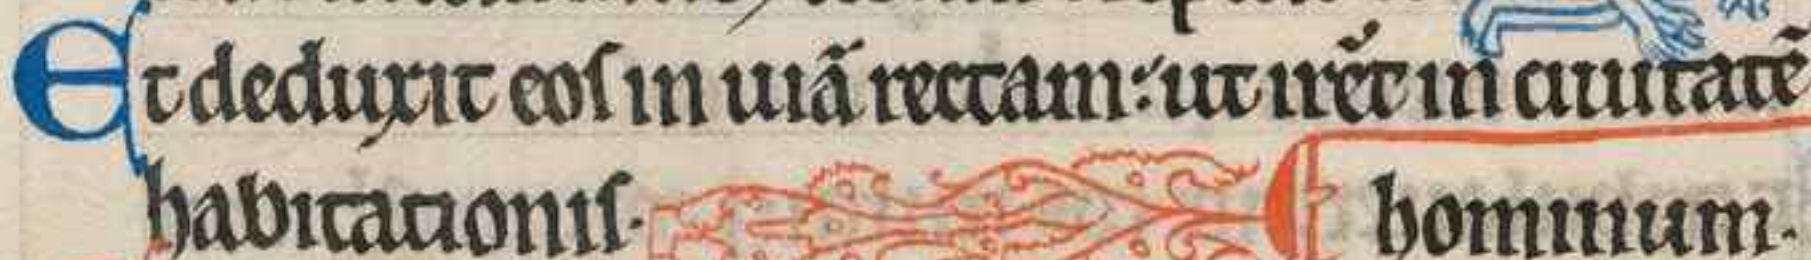 Et deduxit eoſ in uiã rectam: ut irẽt in ciuitatẽ
habitationiſ. hominum.